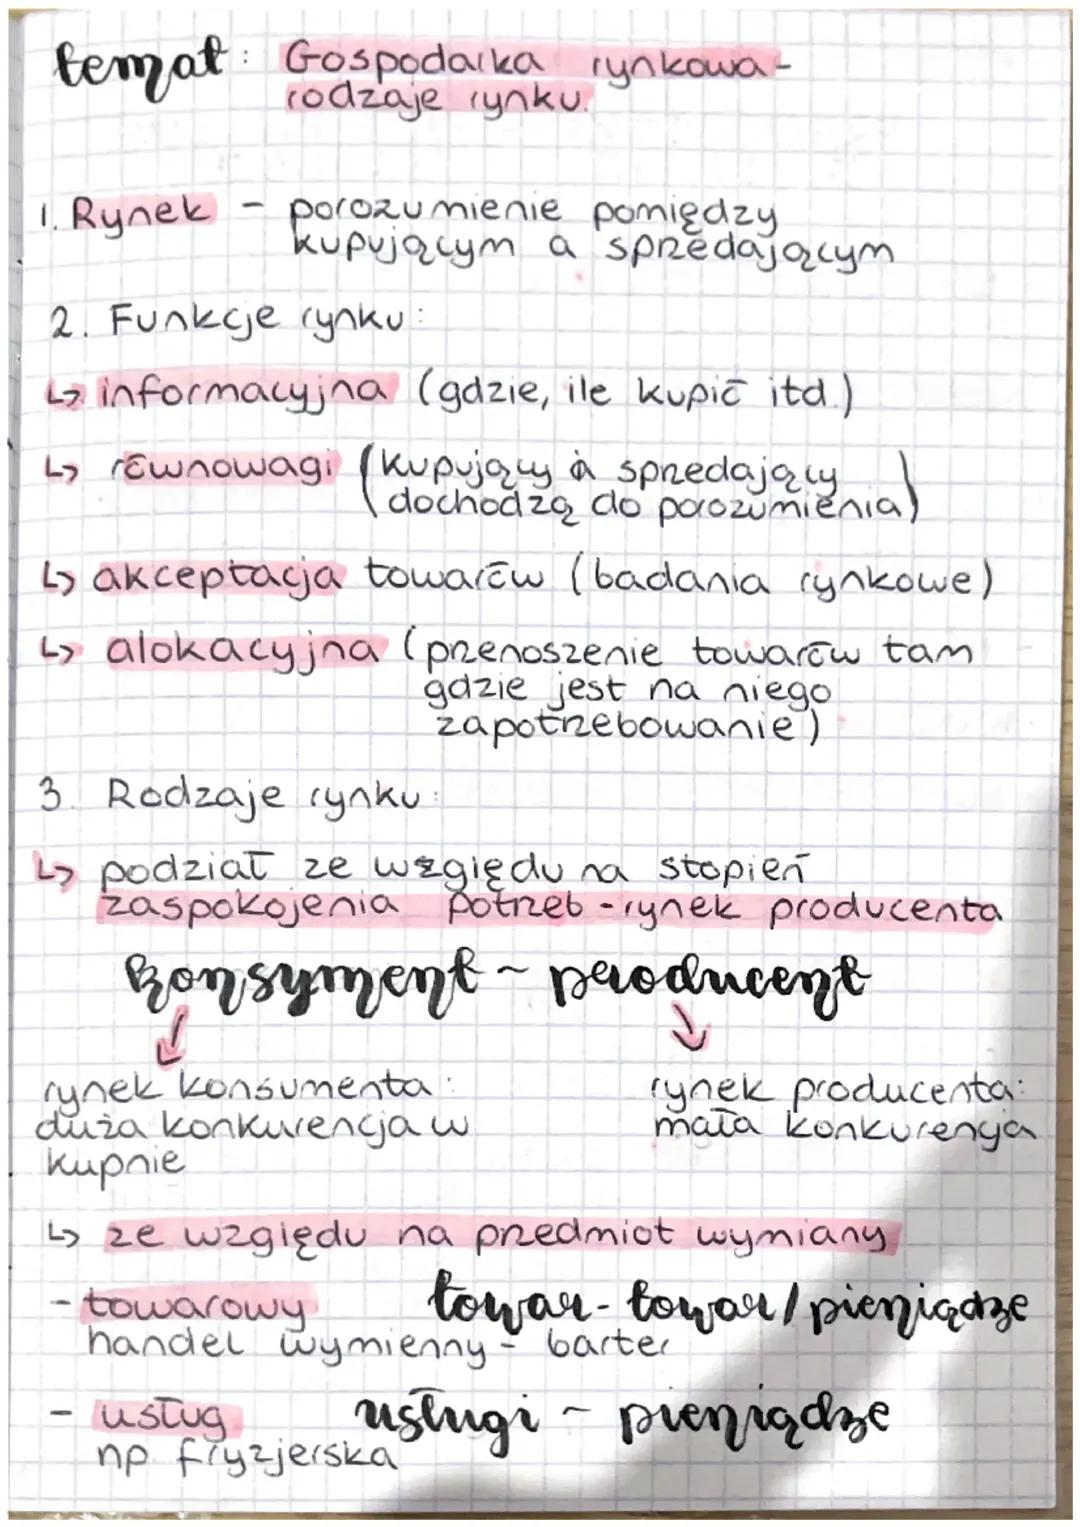 temat: Gospodarka rynkowa -
rodzaje rynku.
1. Rynek - porozumienie pomiędzy
kupującym a sprzedającym
2. Funkcje rynku:
↳ informacyjna (gdzie, ile kupić itd.)
↳ równowagi (kupujący a sprzedający
dochodzą do porozumienia)
↳ akceptacja towarów (badania rynkowe)
↳ alokacyjna (przenoszenie towarów tam
gdzie jest na niego
zapotrzebowanie)
3. Rodzaje rynku:
↳ podział ze względu na stopień
zaspokojenia potrzeb - rynek producenta
konsyment - producent
rynek konsumenta:
duża konkurencja w
kupnie
rynek producenta:
mała konkurencja
↳ ze względu na przedmiot wymiany
- towarowy towar - towar / pieniądze
handel wymienny - barter
- usług usługi - pieniądze
np. fryzjerska